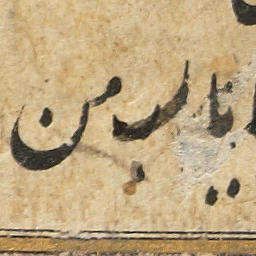 یارب من